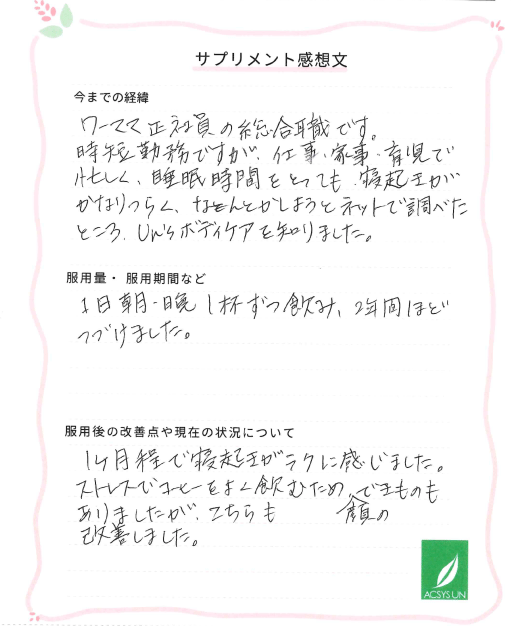 サプリメント感想文
今までの経緯
ワーママ正社員の総合職です。
時短勤務ですが、仕事・家事・育児で
忙しく、睡眠時間をとっても、寝起きが
かなりつらく、なんとかしようとネットで調べた
ところ、Un'sボディケアを知りました。
服用量・服用期間など
1日朝・晩 1杯ずつ飲み、2年間ほど
つづけました。
服用後の改善点や現在の状況について
1ヶ月程で寝起きがラクに感じました。
ストレスでコーヒーをよく飲むため、顔のできものも
ありましたが、こちらも
改善しました。
ACSYS UN